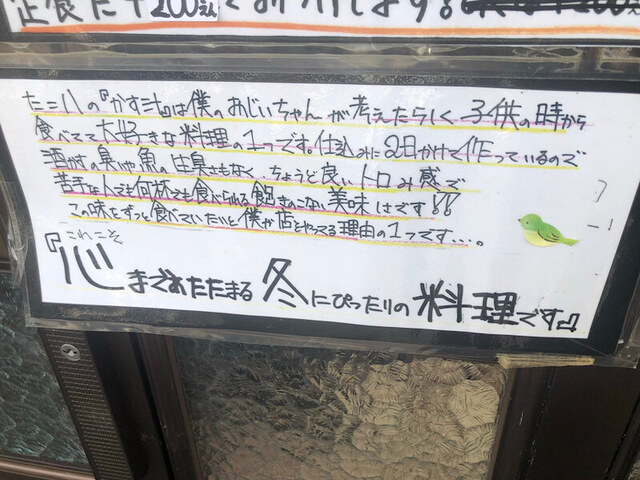 定食に+200えんでお付けします。
たこ八の『かす汁』は僕のおじいちゃんが考えたらしく子供の時から
食べてて大好きな料理の1つです。仕込みに2日かけて作っているので
酒かすの臭いや魚の生臭さもなく、ちょうど良いトロみ感で
苦手な人でも何杯でも食べられる飽きのこない美味しさです!!
この味をずっと食べていたいと僕が店をやってる理由の1つです…。
これこそ
『心まであたたまる冬にぴったりの料理です』